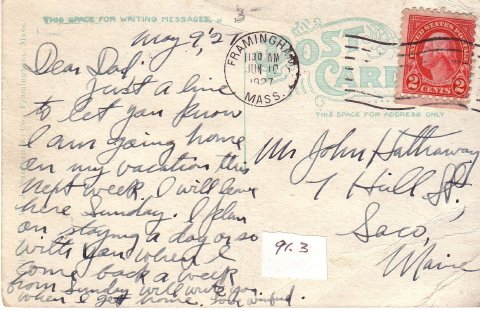 3-
THIS SPACE FOR WRITING MESSAGES.
May 9, '27
Dear Dad:
Just a line
to let you know
I am going home
on my vacation this
next week. I will leave
here Sunday. I plan
on staying a day or so
with you when I
come back a week
from Sunday will write you
when I get home. Your Winford.
FRAMINGHAM
11 30 AM
JUN 10
1927
MASS.
POST
CARD
THIS SPACE FOR ADDRESS ONLY
UNITED STATES POSTAGE
2 CENTS 2
Mr John Hathaway
7 Hill St.
Saco,
Maine
91.3
Framingham, Mass.